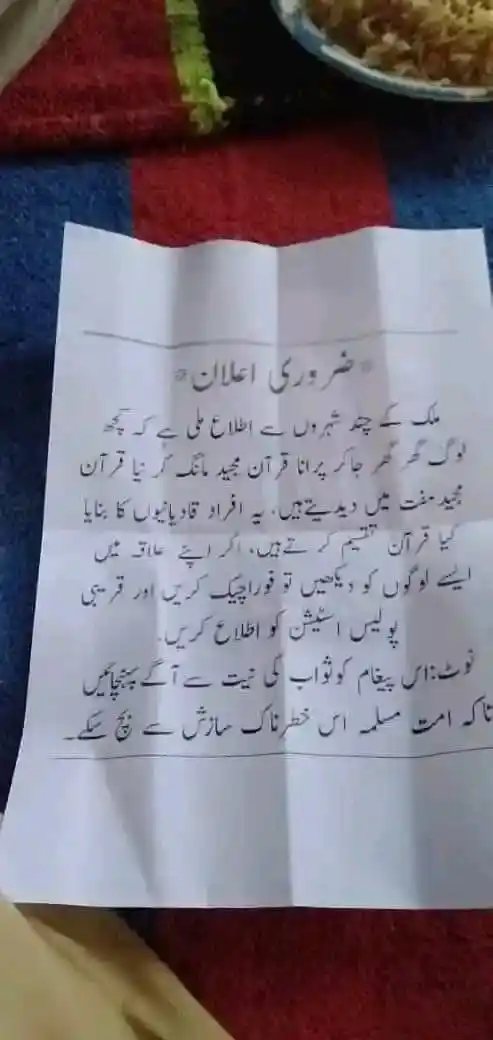 *ضروری اعلان*
ملک کے چند شہروں سے اطلاع ملی ہے کہ کچھ
لوگ گھر گھر جاکر پرانا قرآن مجید مانگ کر نیا قرآن
مجید مفت میں دیدیتےہیں، یہ افراد قادیانیوں کا بنایا
گیا قرآن تقسیم کرتےہیں، اگر اپنے علاقہ میں
ایسے لوگوں کو دیکھیں تو فوراچیک کریں اور قریبی
پولیس اسٹیشن کو اطلاع کریں.
نوٹ:اس پیغام کوثواب کی نیت سے آگے پہنچائیں
تاکہ امت مسلمہ اس خطرناک سازش سے بچ سکے۔